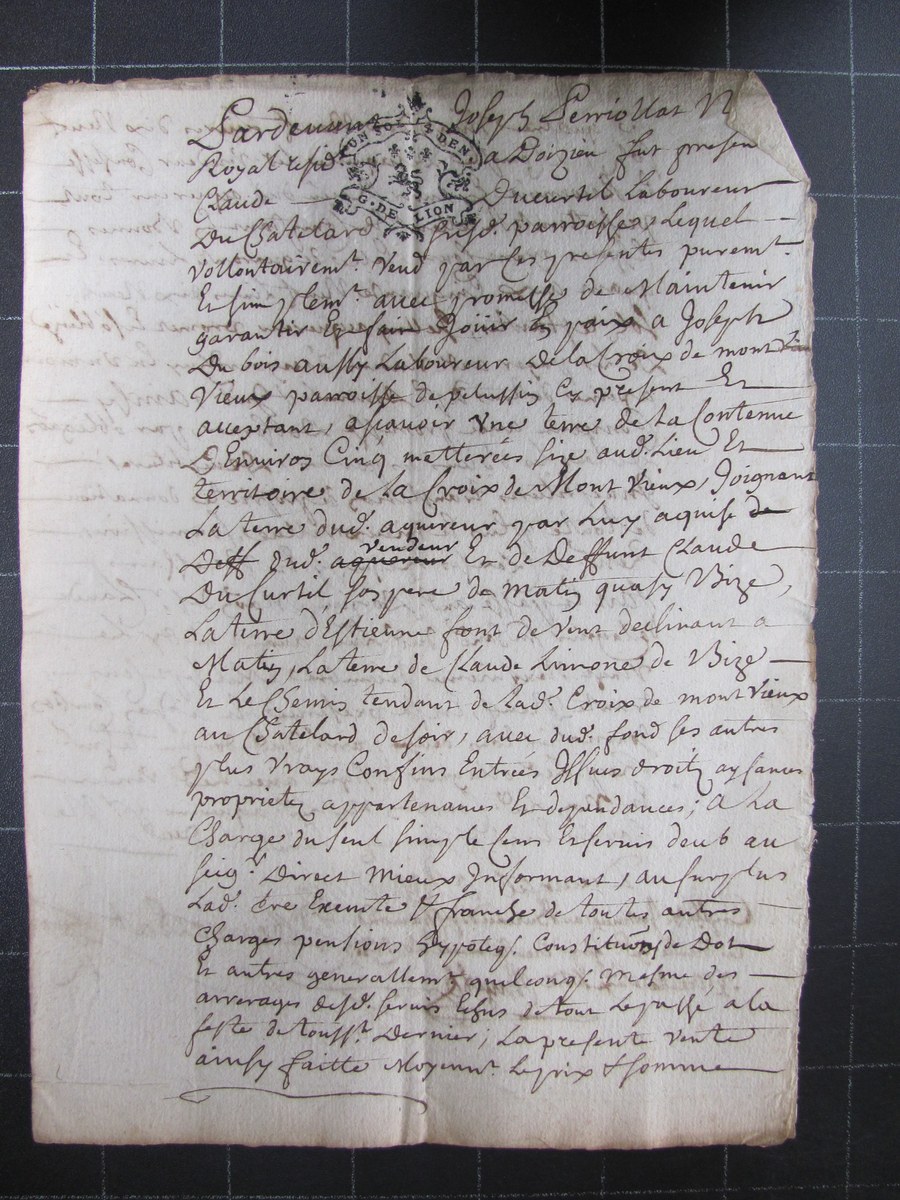 Pardevant Joseph Perriollat N
Royal resid a Doizieu fut presen
UN SOL DEN.
G. DE LION
Claude — Ducurtil Laboureur
Du Chatelard susd. parroisse, Lequel —
vollontairemt. vend par ces presentes puremt.
Et simplemt. avec promesse de Maintenir
garantir Et faire Joüir En paix a Joseph
Dubois aussy Laboureur De la Croix de mont
Vieux parroisse de pelussin Cy present Et
acceptant, ascavoir Une terre de la Contenue
D'Environ Cinq metterées size aud. Lieu Et
territoire de la Croix de Mont Vieux, Joignant
La terre dud. aquereur par Luy aquise de
Deff dud. aquereur vendeur Et de Deffunt Claude
Du Curtil son pere de matin quasy Bize,
La terre d'Estienne font de vent declinant a
Matin, La terre de Claude Limone de Bize —
Et Le Chemin tendant de lad. Croix de mont Vieux
au Chatelard de soir, avec dud. fond ses autres
plus Vrays Confins Entrées Issues droits aysances
proprietés appartenances Et dependances; a La
Charge du seul simple cens Et servis deub au
seigr. Direct Mieux Informant, au surplus
Lad. tre Exempte & franche de toutes autres
Charges pensions hypoteqs. Constitutions de Dot
Et autres generallemt. quelconqs. mesme des —
arrerages desd. servis Echus de tout Le passé a la
feste de toussts. Dernier; La presente vente
ainsy faitte Moyennt. Le prix & somme